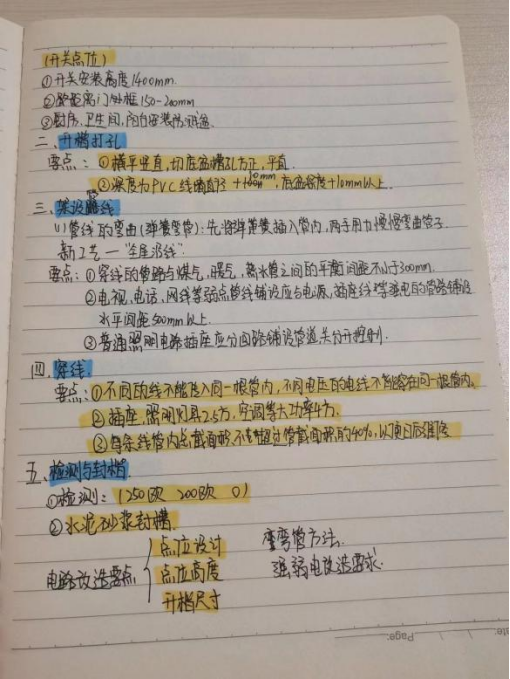 (开关点位)
①开关安装高度1400mm.
②距离门外框150-200mm
③厨房、卫生间、阳台安装防溅盒.
二、开槽打孔
要点：①横平竖直,切底盒槽孔方正,平直.
②深度为PVC线管直径+10mm,底盒深度+10mm以上.
三、架设路线
(1)管线的弯曲(弹簧弯管):先将弹簧插入管内,两手用力慢慢弯曲管子.
新工艺—
要点：①穿线的管路与煤气,暖气,热水管之间的平衡间距不小于300mm.
②电视,电话,网线等弱点管线铺设应与电源,插座线等强电的管路铺设
水平间距500mm以上.
③普通照明电路插座应分回路铺设管道,关分开控制.
四、穿线
要点：①不同的线不能传入同一根管内,不同电压的电线不能穿在同一根管内.
②插座,照明灯具2.5方,空调等大功率4方.
③每条线管内总截面积,不能超过管截面积的40%,以便日后
五、检测与封槽
①检测：(250欧 200欧 0)
②水泥砂浆封槽.
点位设计 弯管方法.
电路改造要点 点位高度 强弱电改造要求.
开槽尺寸
Page: